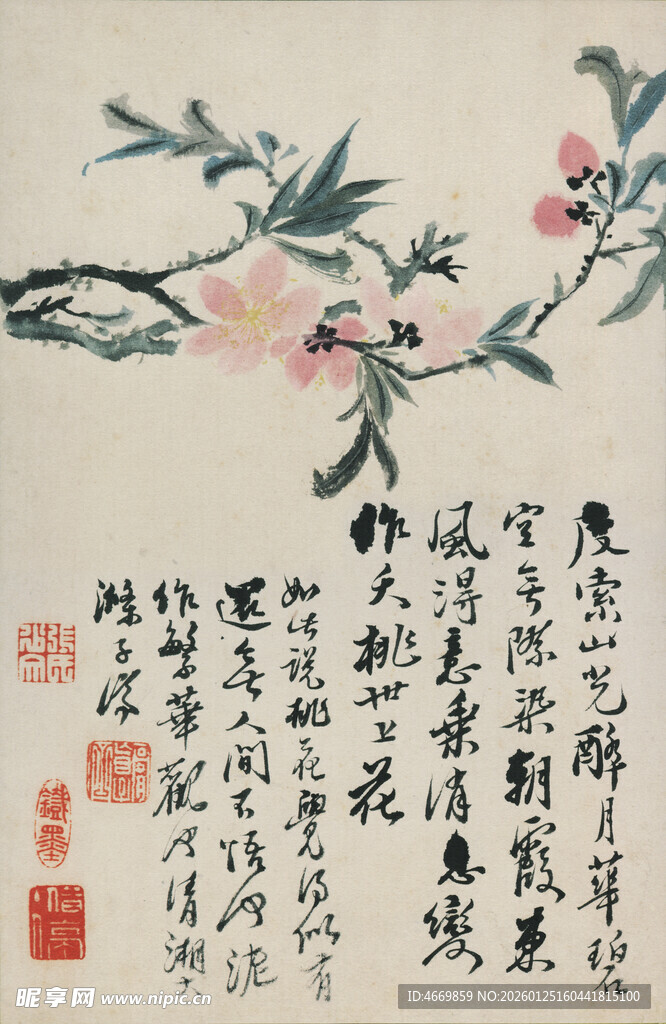 度索山光醉月華碧
空無際染朝霞東
風得意乘消息變
作夭桃世上花
如此說桃花覺得似有
還無人間不悟何泥
作繁華觀也清湘大
滌子濟
鐵墨
昵享网 www.nipic.cn
ID:4669859 NO:20260125160441815100